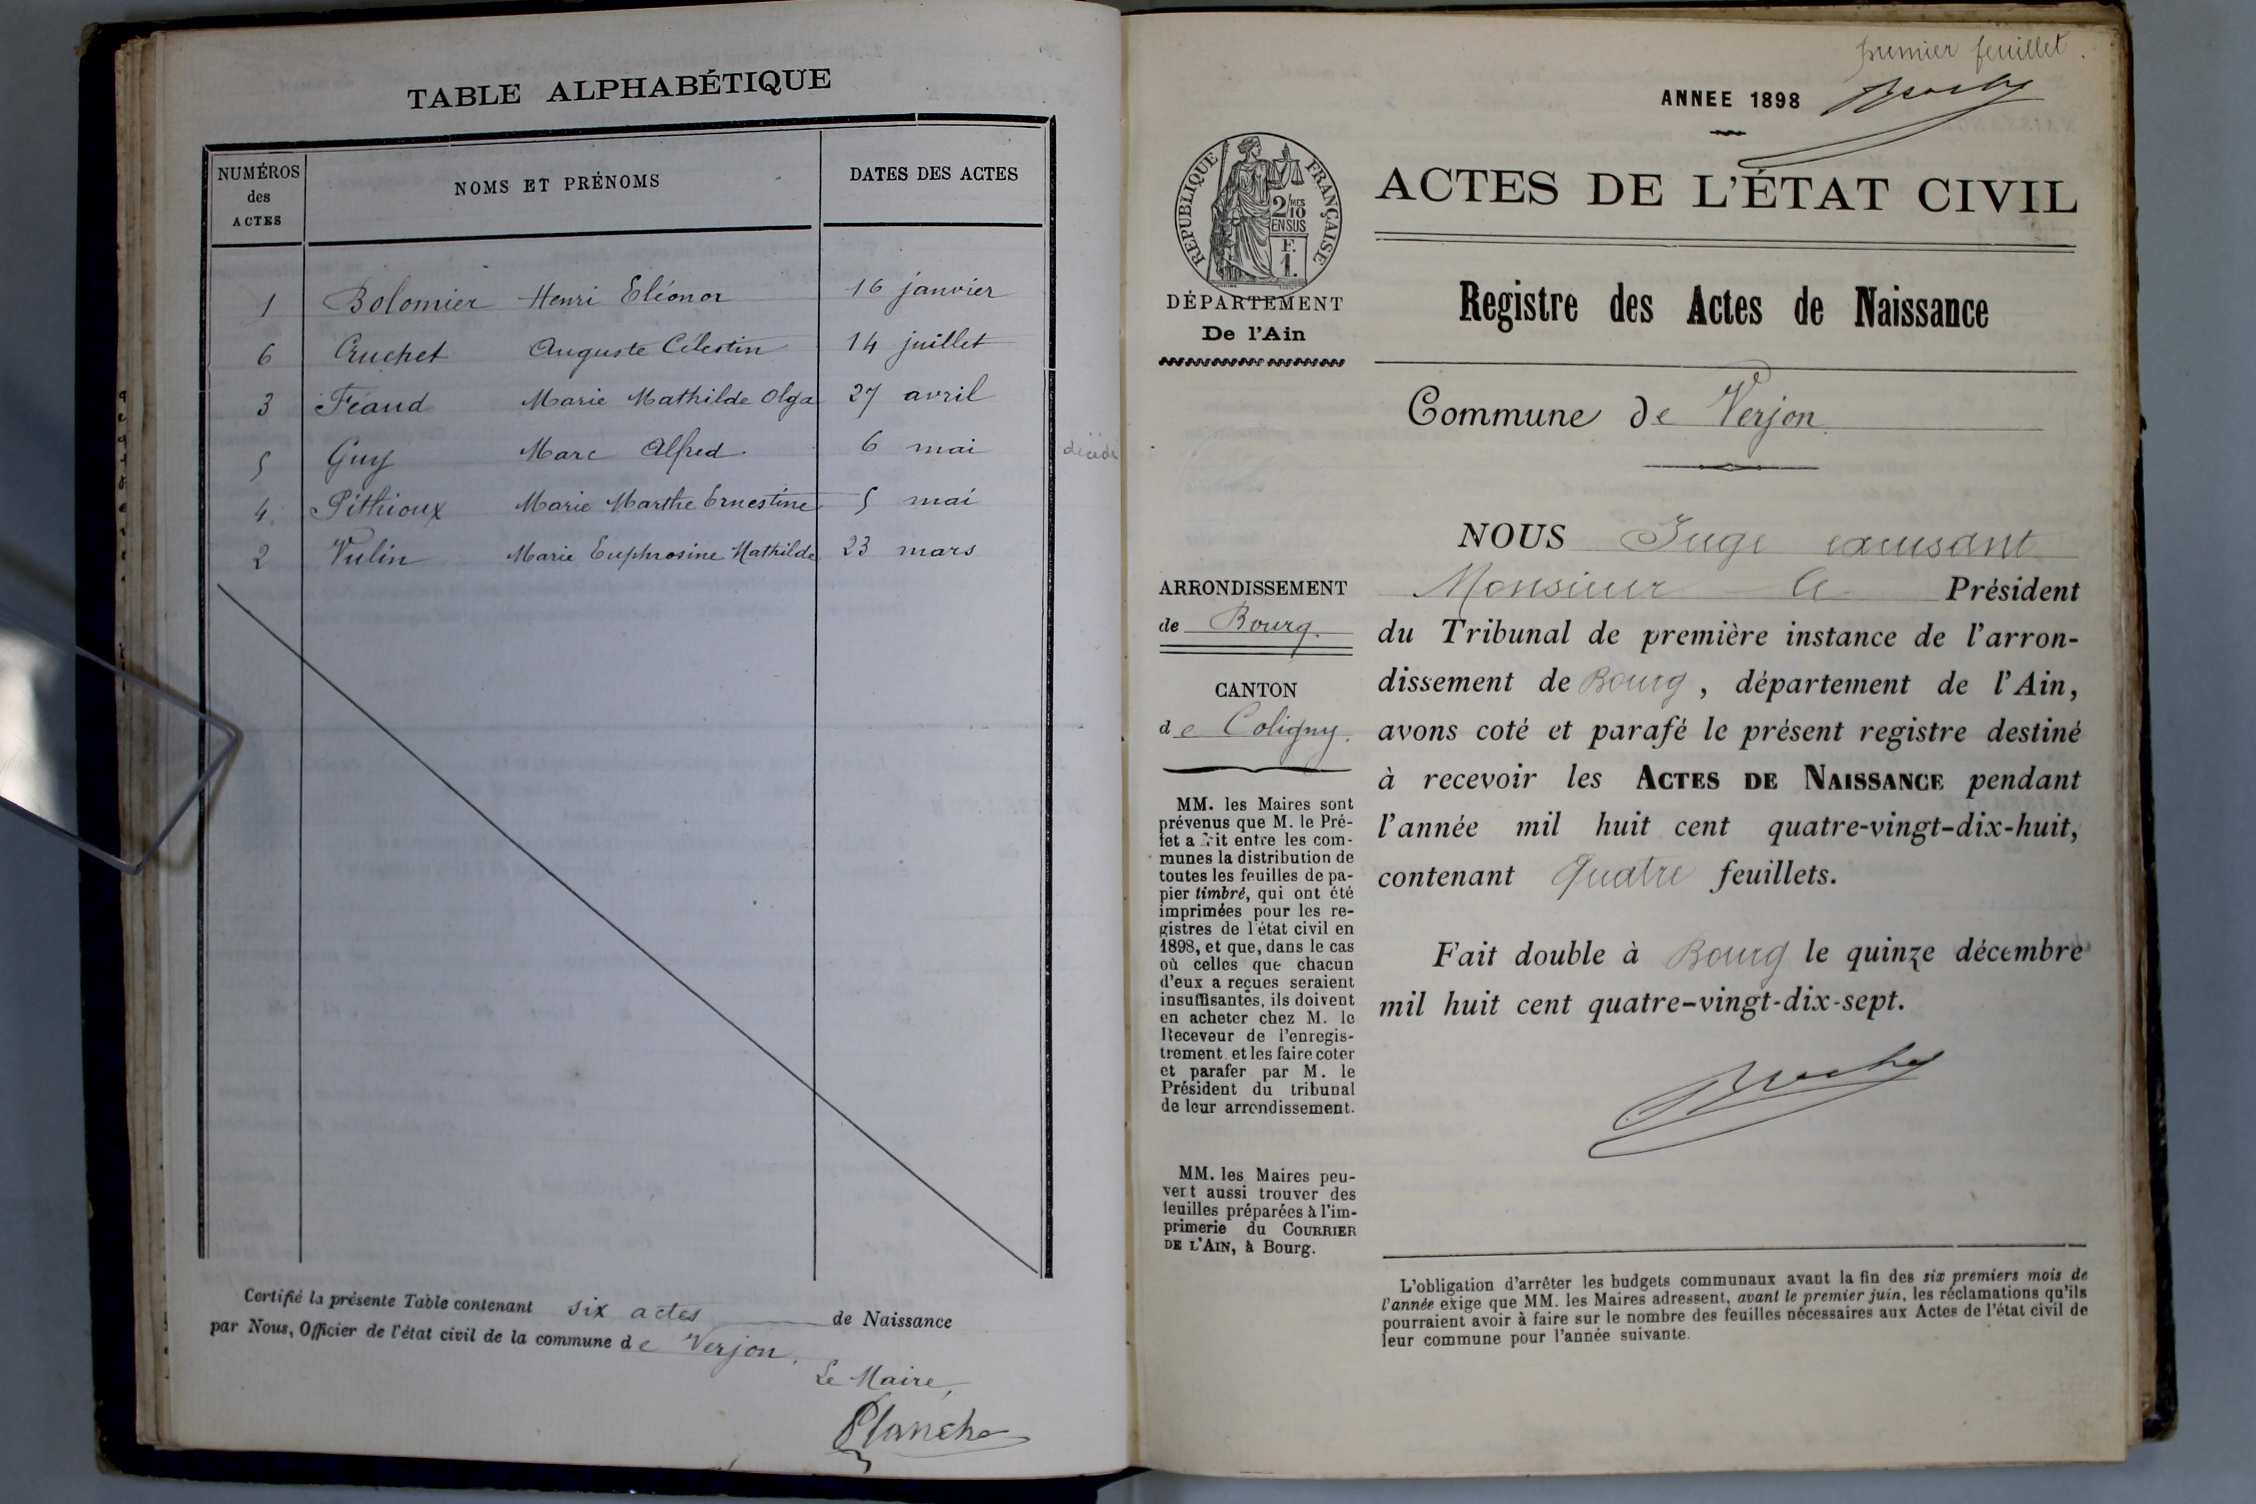 TABLE ALPHABÉTIQUE
NUMÉROS
des
ACTES
NOMS ET PRÉNOMS
DATES DES ACTES
1 Bolomier Henri Eléonor 16 janvier
6 Cruchet Auguste Célestin 14 juillet
3 Féaud Marie Mathilde Olga 27 avril
5 Guy Marc Alfred 6 mai
4 Pithioux Marie Marthe Ernestine 5 mai
2 Vulin Marie Euphrosine Mathilde 23 mars
Certifié la présente Table contenant six actes de Naissance
par Nous, Officier de l'état civil de la commune de Verjon.
Le Maire,
Planche
premier feuillet.
ANNEE 1898
RÉPUBLIQUE FRANÇAISE
2/10MES
EN SUS
F.
1.
DÉPARTEMENT
De l'Ain
ACTES DE L'ÉTAT CIVIL
Registre des Actes de Naissance
Commune de Verjon
ARRONDISSEMENT
de Bourg.
CANTON
de Coligny.
MM. les Maires sont
prévenus que M. le Pré-
fet a fait entre les com-
munes la distribution de
toutes les feuilles de pa-
pier timbré, qui ont été
imprimées pour les re-
gistres de l'état civil en
1898, et que, dans le cas
où celles que chacun
d'eux a reçues seraient
insuffisantes, ils doivent
en acheter chez M. le
Receveur de l'enregis-
trement et les faire coter
et parafer par M. le
Président du tribunal
de leur arrondissement.
MM. les Maires peu-
vent aussi trouver des
feuilles préparées à l'im-
primerie du COURRIER
DE L'AIN, à Bourg.
NOUS Juge excusant
Monsieur le Président
du Tribunal de première instance de l'arron-
dissement de Bourg, département de l'Ain,
avons coté et parafé le présent registre destiné
à recevoir les ACTES DE NAISSANCE pendant
l'année mil huit cent quatre-vingt-dix-huit,
contenant Quatre feuillets.
Fait double à Bourg le quinze décembre
mil huit cent quatre-vingt-dix-sept.
L'obligation d'arrêter les budgets communaux avant la fin des six premiers mois de
l'année exige que MM. les Maires adressent, avant le premier juin, les réclamations qu'ils
pourraient avoir à faire sur le nombre des feuilles nécessaires aux Actes de l'état civil de
leur commune pour l'année suivante.